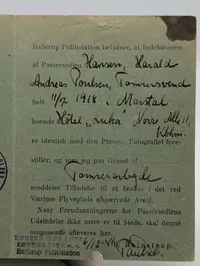 Ballerup Politistation bevidner, at Indehaveren
af Passersedlen Hansen, Harald
Andreas Poulsen, Tømrersvend
født 11/2 1918 i Marstal
boende Hotel „ "Nora Alle 11,
Kbhvn.
er identisk med den Person, Fotografiet fore-
stiller, og som jeg paa Grund af
Tømrerarbejde
meddeler Tilladelse til at færdes i det ved
Værløse Flyveplads afspærrede Areal.
Naar Forudsætningerne for Passersedlens
Udstedelse ikke mere er til Stede, skal denne
omgaaende afleveres her.
Ballerup Politistation
6/12-